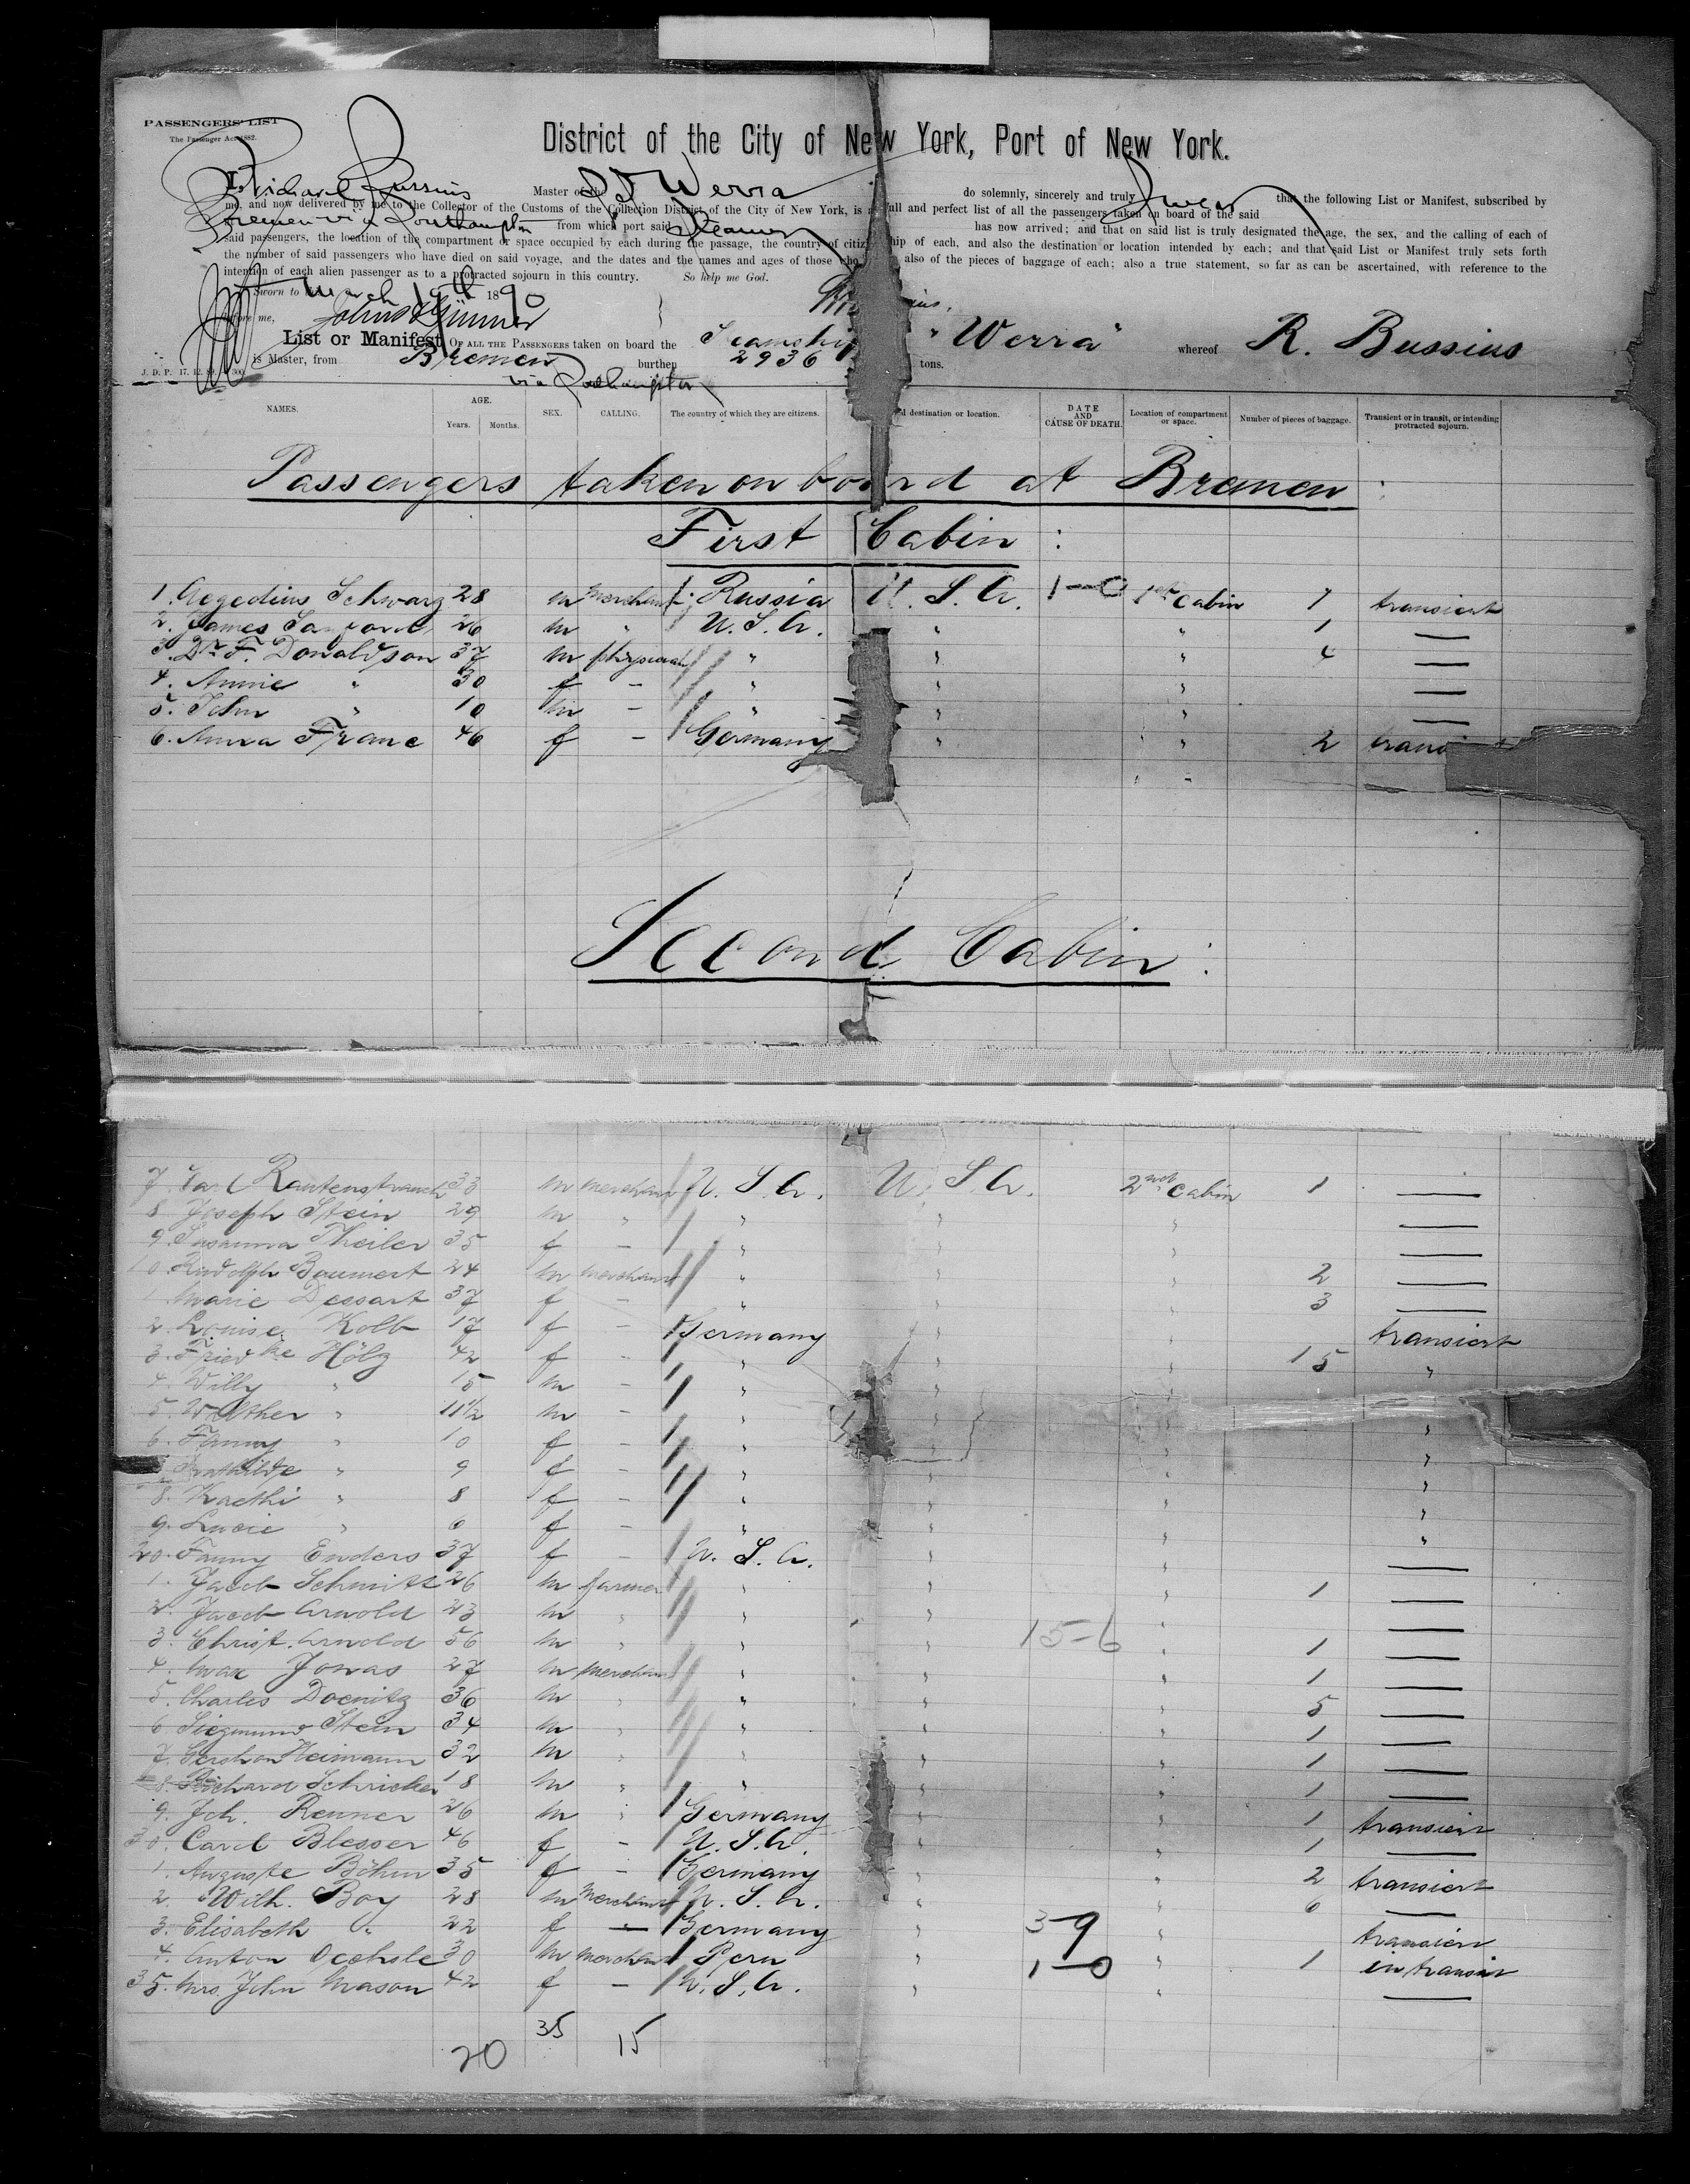 PASSENGERS' LIST
The Passenger Act 1882.
District of the City of New York, Port of New York.
I, Richard Bussius Master of the SS Werra do solemnly, sincerely and truly swear that the following List or Manifest, subscribed by
me, and now delivered by me to the Collector of the Customs of the Collection District of the City of New York, is a full and perfect list of all the passengers taken on board of the said
Bremen via Southampton from which port said Steamer has now arrived; and that on said list is truly designated the age, the sex, and the calling of each of
said passengers, the location of the compartment or space occupied by each during the passage, the country of citizenship of each, and also the destination or location intended by each; and that said List or Manifest truly sets forth
the number of said passengers who have died on said voyage, and the dates and the names and ages of those who also of the pieces of baggage of each; also a true statement, so far as can be ascertained, with reference to the
intention of each alien passenger as to a protracted sojourn in this country. So help me God.
Sworn to March 19th 1890
before me,
List or Manifest OF ALL THE PASSENGERS taken on board the Steamship "Werra" whereof R. Bussius
is Master, from Bremen burthen 2936 tons.
via Southampton
J. D. P. 17. 12.
NAMES. AGE. Years. Months. SEX. CALLING. The country of which they are citizens. destination or location. DATE AND CAUSE OF DEATH. Location of compartment or space. Number of pieces of baggage. Transient or in transit, or intending protracted sojourn.
Passengers taken on board at Bremen:
First Cabin:
1. Aegedius Schwarz 28 m merchant Russia U. S. A. 1-0 1st Cabin 1 transient
2. James Sanford 26 m " U. S. A. " " 1 —
3. Dr. F. Donaldson 37 m physician " " " 4 —
4. Annie " 30 f - " " " —
5. John " 10 m - " " " —
6. Anna Franc 46 f - Germany " " 2
Second Cabin:
7 Rautenstrauch 33 m merchant U. S. A. U. S. A. 2nd Cabin 1 —
8 Joseph Stein 29 m " " " " —
9. Susanna Theiler 35 f - " " " —
10. Rudolph Baumert 24 m merchant " " " 2 —
1. Marie Dessart 37 f - " " " 3 —
2. Louise Kolb 17 f - Germany " " transient
3. Friedke Hölz 42 f - " " " 15 "
4. Willy " 15 m - " "
5. Walther " 11 1/2 m - " " "
6. Fanny " 10 f - " " "
Mathilde " 9 f - " " "
8. Kaethi " 8 f - " " " "
9. Lucie " 6 f - " " " "
20. Fanny Enders 37 f - U. S. A. " " —
1. Jacob Schmitz 26 m farmer " " " 1 —
2. Jacob Arnold 23 m " " " " —
3. Christ. Arnold 56 m " " " 15-6 " 1 —
4. Max Jonas 27 m merchant " " " 1 —
5. Charles Doenitz 36 m " " " " 5 —
6 Siegmund Stein 34 m " " " " 1 —
7. Gershon Heimann 32 m " " " " 1 —
8. Richard Schricker 18 m " " " " 1 —
9. Joh. Renner 26 m " Germany " " 1 transient
30. Carol Blesser 46 f - U. S. A. " " 1 —
1. Auguste Böhm 35 f - Germany " " 2 transient
2 Wilh. Boy 28 m Merchant U. S. A. " " 6 —
3. Elisabeth " 22 f — Germany " 3-9 " transient
4. Anton Oechsle 30 m merchant Peru " 1-0 " 1 in transit
35. Mrs. John Mason 42 f - U. S. A. " " —
35
20 15